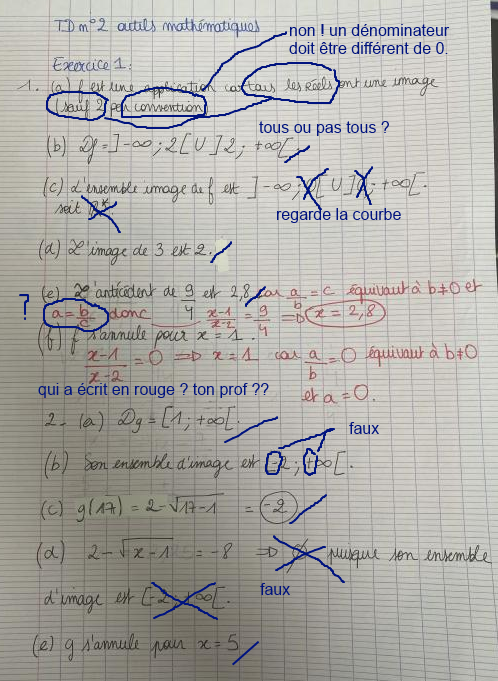 TD n°2 outils mathématiques
non ! un dénominateur
doit être différent de 0.
Exercice 1:
1. (a) f est une application car tous les réels ont une image
(sauf 2 par convention)
tous ou pas tous ?
(b) Df = ]-∞ ; 2[ U ]2 ; +∞[
(c) L'ensemble image de f est ]-∞ ; [ U ] ; +∞[.
soit
regarde la courbe
(d) L'image de 3 est 2.
(e) L'antécédent de 9/4 est 2,8 car a/b = c équivaut à b≠0 et
? a = b/c donc x-1/x-2 = 9/4 => x = 2,8
(f) f s'annule pour x = 1.
x-1/x-2 = 0 => x = 1 car a/b = 0 équivaut à b≠0
et a = 0.
qui a écrit en rouge ? ton prof ??
2- (a) Dg = [1 ; +∞[.
faux
(b) Son ensemble d'image est [-2 ; +∞[.
(c) g(17) = 2-√17-1 = -2
(d) 2-√x-1 = -8 => ∅ puisque son ensemble
d'image est [-2 ; +∞[.
faux
(e) g s'annule pour x = 5